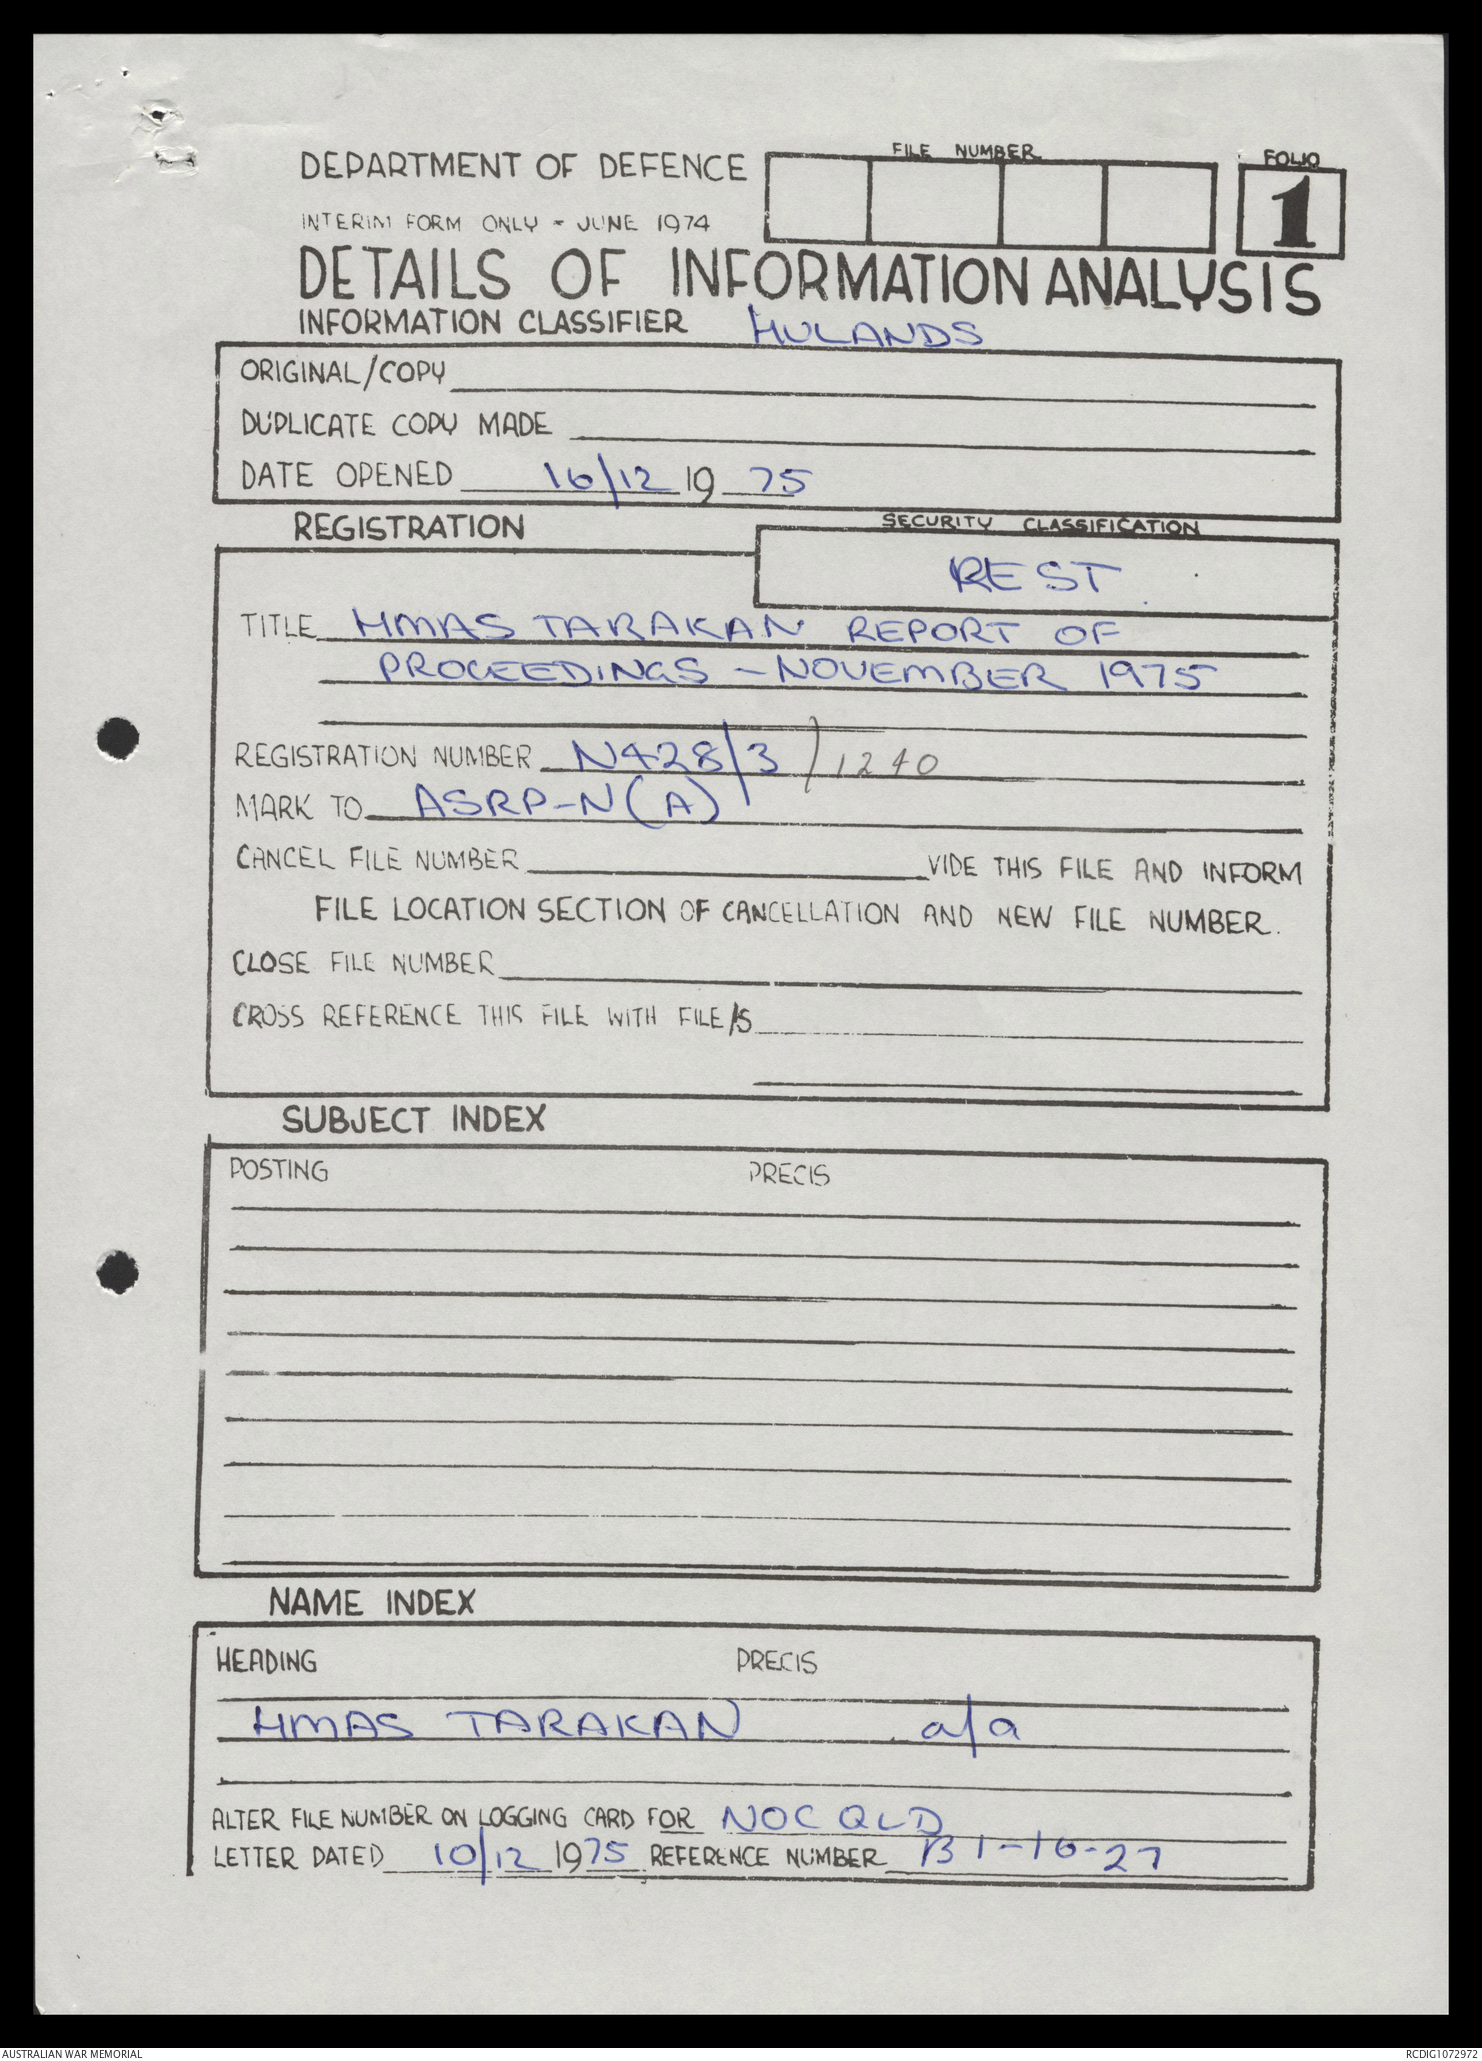 DEPARTMENT OF DEFENCE
FILE NUMBER
FOLIO
1
INTERIM FORM ONLY - JUNE 1974
DETAILS OF INFORMATION ANALYSIS
INFORMATION CLASSIFIER HULANDS
ORIGINAL/COPY
DUPLICATE COPY MADE
DATE OPENED 16/12 19 75
REGISTRATION
SECURITY CLASSIFICATION
REST
TITLE HMAS TARAKAN REPORT OF
PROCEEDINGS - NOVEMBER 1975
REGISTRATION NUMBER N428/3/1240
MARK TO ASRP-N(A)
CANCEL FILE NUMBER VIDE THIS FILE AND INFORM
FILE LOCATION SECTION OF CANCELLATION AND NEW FILE NUMBER.
CLOSE FILE NUMBER
CROSS REFERENCE THIS FILE WITH FILE/S
SUBJECT INDEX
POSTING PRECIS
NAME INDEX
HEADING PRECIS
HMAS TARAKAN a/a
ALTER FILE NUMBER ON LOGGING CARD FOR NOC QLD
LETTER DATED 10/12 1975 REFERENCE NUMBER B1-16-27
AUSTRALIAN WAR MEMORIAL
RCDIG1072972